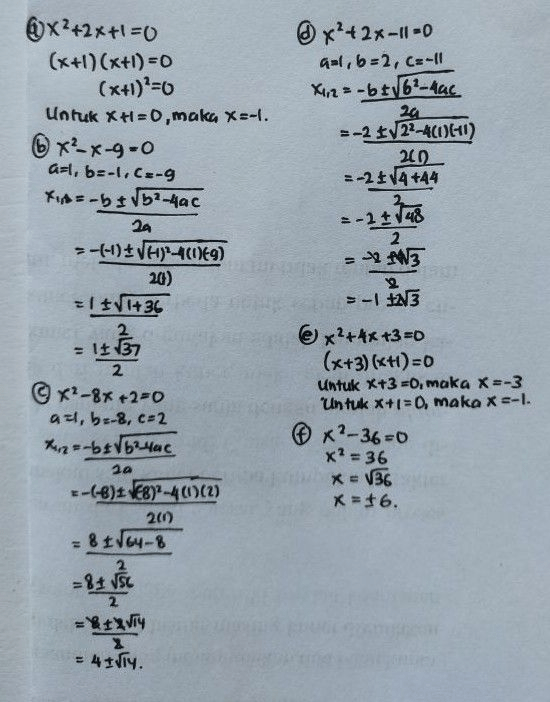 (a) x²+2x+1=0
(x+1)(x+1)=0
(x+1)²=0
Untuk x+1=0, maka x=-1.
(b) x²-x-9=0
a=1, b=-1, c=-9
x₁,₂ = (-b±√(b²-4ac))/2a
= (-(-1)±√((-1)²-4(1)(-9)))/2(1)
= (1±√(1+36))/2
= (1±√37)/2
(c) x²-8x+2=0
a=1, b=-8, c=2
x₁,₂ = (-b±√(b²-4ac))/2a
= (-(-8)±√((-8)²-4(1)(2)))/2(1)
= (8±√(64-8))/2
= (8±√56)/2
= (8±2√14)/2
= 4±√14.
(d) x²+2x-11=0
a=1, b=2, c=-11
x₁,₂ = (-b±√(b²-4ac))/2a
= (-2±√(2²-4(1)(-11)))/2(1)
= (-2±√(4+44))/2
= (-2±√48)/2
= (-2±4√3)/2
= -1±2√3
(e) x²+4x+3=0
(x+3)(x+1)=0
Untuk x+3=0, maka x=-3
Untuk x+1=0, maka x=-1.
(f) x²-36=0
x²=36
x=√36
x=±6.